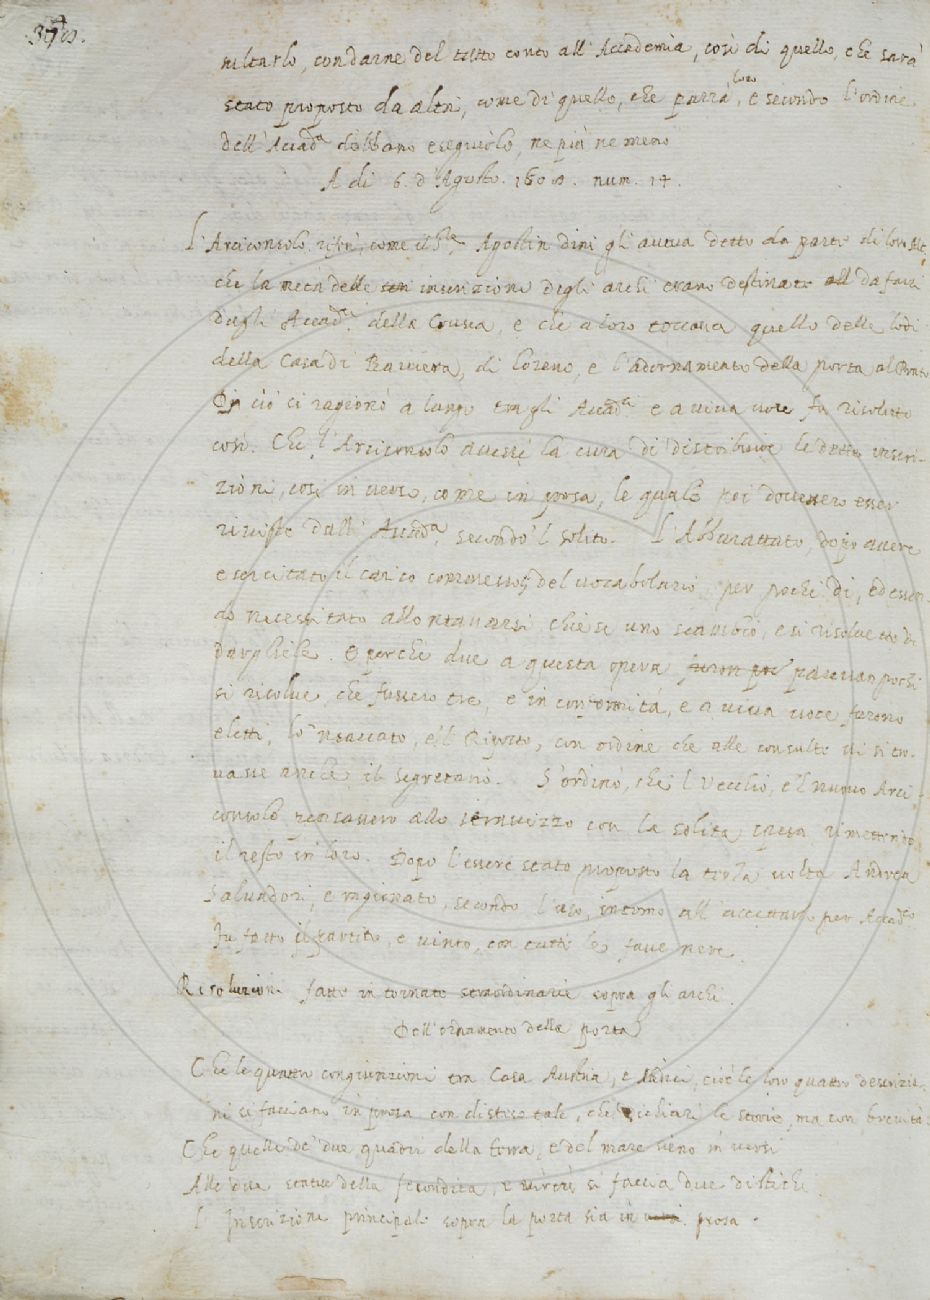 nultarlo, con darne del tutto conto all'Accademia, così di quello, che sarà
stato proposto da altri, come di quello, che parrà loro, e secondo l'ordine
dell'Accad.a debbano eseguirlo, ne più ne meno
A di 6. d'Agosto. 1608. num. 14.
L'Arciconsolo riferì, come il S.r Agostin Dini gli aveva detto da parte di loro Alt.e
che la metà delle inscrizioni degli archi erano destinate da farsi
dagli Accad.i della Crusca, e che a loro toccava quello delle lodi
della Casa di Baviera, di Loreno, e l'adornamento della porta al Prato
Di ciò ci ragionò a lungo tra gli Accad.i e a viva voce fu risoluto
così. Che l'Arciconsolo avesse la cura di distribuire le dette inscri-
zioni, così in verso, come in prosa, le quali poi dovessero esser
riviste dall'Accad.a secondo 'l solito. L'Abburattato, dopo avere
esercitato il carico commessogli del vocabolario, per pochi dì, ed essen-
do necessitato allontanarsi chiese uno scambio, e si risolvette di
dargliele. E perchè due a questa opera parevan pochi
si risolve, che fussero tre, e in conformità, e a viva voce furono
eletti, lo 'Nsaccato, e 'l Riposto, con ordine che alle consulte vi si tro-
vasse anche il segretario. S'ordinò, che 'l Vecchio, e 'l nuovo Arci-
consolo pensassero allo stravizzo con la solita spesa rimettendo
il resto in loro. Dopo l'essere stato proposto la terza volta Andrea
Salvadori, e ragionato, secondo l'uso, intorno all'accettarlo per Accad.co
fu fatto il partito, e vinto, con tutte le fave nere.
Risoluzioni fatte in tornate straordinarie sopra gli archi.
Dell'ornamento della porta
Che le quattro congiunzioni tra Casa Austria, e Medici, cioè le loro quattro descrizio-
ni si facciano in prosa con distico tale, che dichiari le storie, ma con brevità.
Che quelle de' due quadri della terra, e del mare sieno in versi
Alle due statue della fecondità, e virtù si faccia due distichi.
L'Inscrizione principale sopra la porta sia in prosa.